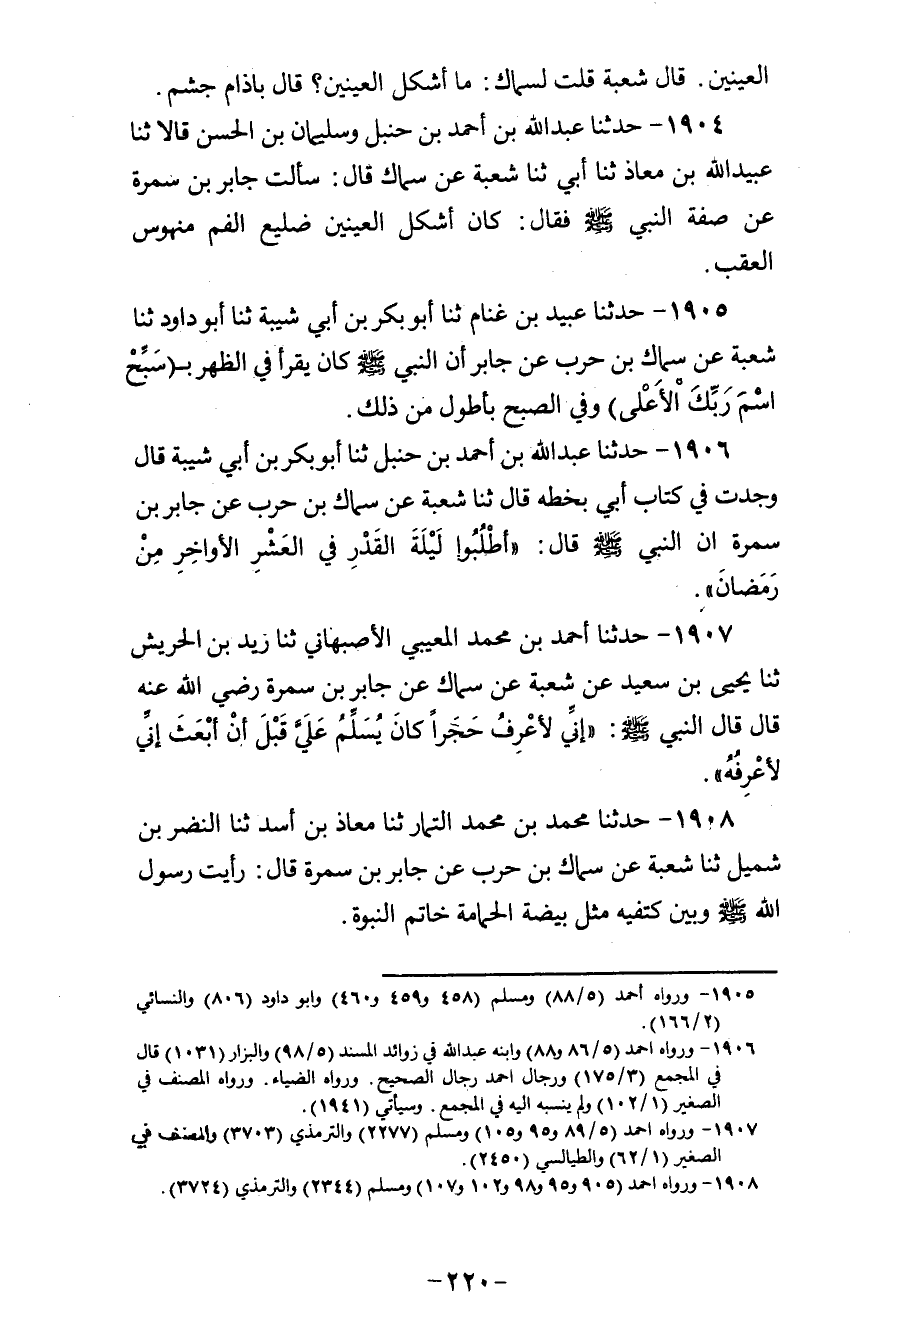 العينين. قال شعبة قلت لسماك: ما أشكل العينين؟ قال باذام جشم.
١٩٠٤- حدثنا عبدالله بن أحمد بن حنبل وسليمان بن الحسن قالا ثنا
عبيدالله بن معاذ ثنا أبي ثنا شعبة عن سماك قال: سألت جابر بن سمرة
عن صفة النبي ﷺ فقال: كان أشكل العينين ضليع الفم منهوس
العقب.
١٩٠٥- حدثنا عبيد بن غنام ثنا أبوبكر بن أبي شيبة ثنا أبو داود ثنا
شعبة عن سماك بن حرب عن جابر أن النبي ﷺ كان يقرأ في الظهر بـ(سَبِّحْ
اسْمَ رَبِّكَ الْأَعْلى) وفي الصبح بأطول من ذلك.
١٩٠٦- حدثنا عبدالله بن أحمد بن حنبل ثنا أبوبكر بن أبي شيبة قال
وجدت في كتاب أبي بخطه قال ثنا شعبة عن سماك بن حرب عن جابر بن
سمرة ان النبي ﷺ قال: «أطْلُبُوا لَيْلَةَ القَدْرِ في العَشْرِ الأواخِرِ مِنْ
رَمَضانَ».
١٩٠٧- حدثنا أحمد بن محمد المعيبي الأصبهاني ثنا زيد بن الحريش
ثنا يحيى بن سعيد عن شعبة عن سماك عن جابر بن سمرة رضي الله عنه
قال قال النبي ﷺ: «إنِّي لأعْرِفُ حَجَراً كانَ يُسَلِّمُ عَلَيَّ قَبْلَ أنْ أبْعَثَ إنِّي
لأعْرِفُهُ».
١٩٠٨- حدثنا محمد بن محمد التمار ثنا معاذ بن أسد ثنا النضر بن
شميل ثنا شعبة عن سماك بن حرب عن جابر بن سمرة قال: رأيت رسول
الله ﷺ وبين كتفيه مثل بيضة الحمامة خاتم النبوة.
١٩٠٥- ورواه أحمد (٨٨/٥) ومسلم (٤٥٨ و٤٥٩ و٤٦٠) وابو داود (٨٠٦) والنسائي
(١٦٦/٢).
١٩٠٦- ورواه احمد (٨٦/٥ و٨٨) وابنه عبدالله في زوائد المسند (٩٨/٥) والبزار (١٠٣١) قال
في المجمع (١٧٥/٣) ورجال احمد رجال الصحيح. ورواه الضياء. ورواه المصنف في
الصغير (١٠٢/١) ولم ينسبه اليه في المجمع. وسيأتي (١٩٤١).
١٩٠٧- ورواه احمد (٨٩/٥ و٩٥ و١٠٥) ومسلم (٢٢٧٧) والترمذي (٣٧٠٣) والمصنف في
الصغير (٦٢/١) والطيالسي (٢٤٥٠).
١٩٠٨- ورواه احمد (٩٠٥ و٩٥ و٩٨ و١٠٢ و١٠٧) ومسلم (٢٣٤٤) والترمذي (٣٧٢٤).
-٢٢٠-